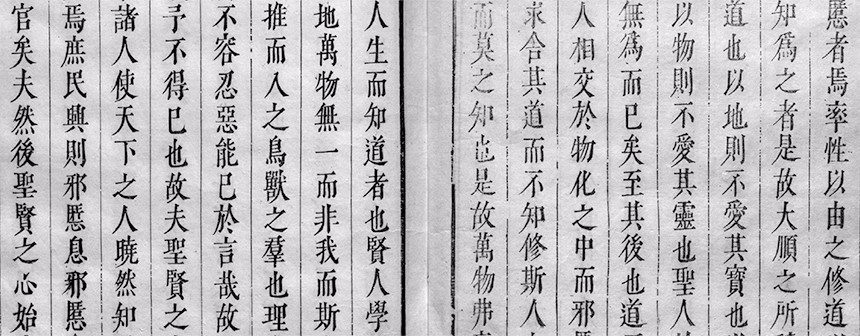 慝者焉率性以由之修道
知爲之者是故大順之所
道也以地則不愛其寶也
以物則不愛其靈也聖人
無爲而已矣至其後也道
人相交於物化之中而邪慝
求合其道而不知修斯人
而莫之知也是故萬物弗
人生而知道者也賢人學
地萬物無一而非我而斯
推而入之鳥獸之羣也理
不容忍惡能已於言哉故
予不得已也故夫聖賢之
諸人使天下之人曉然知
焉庶民興則邪慝息邪慝
官矣夫然後聖賢之心始